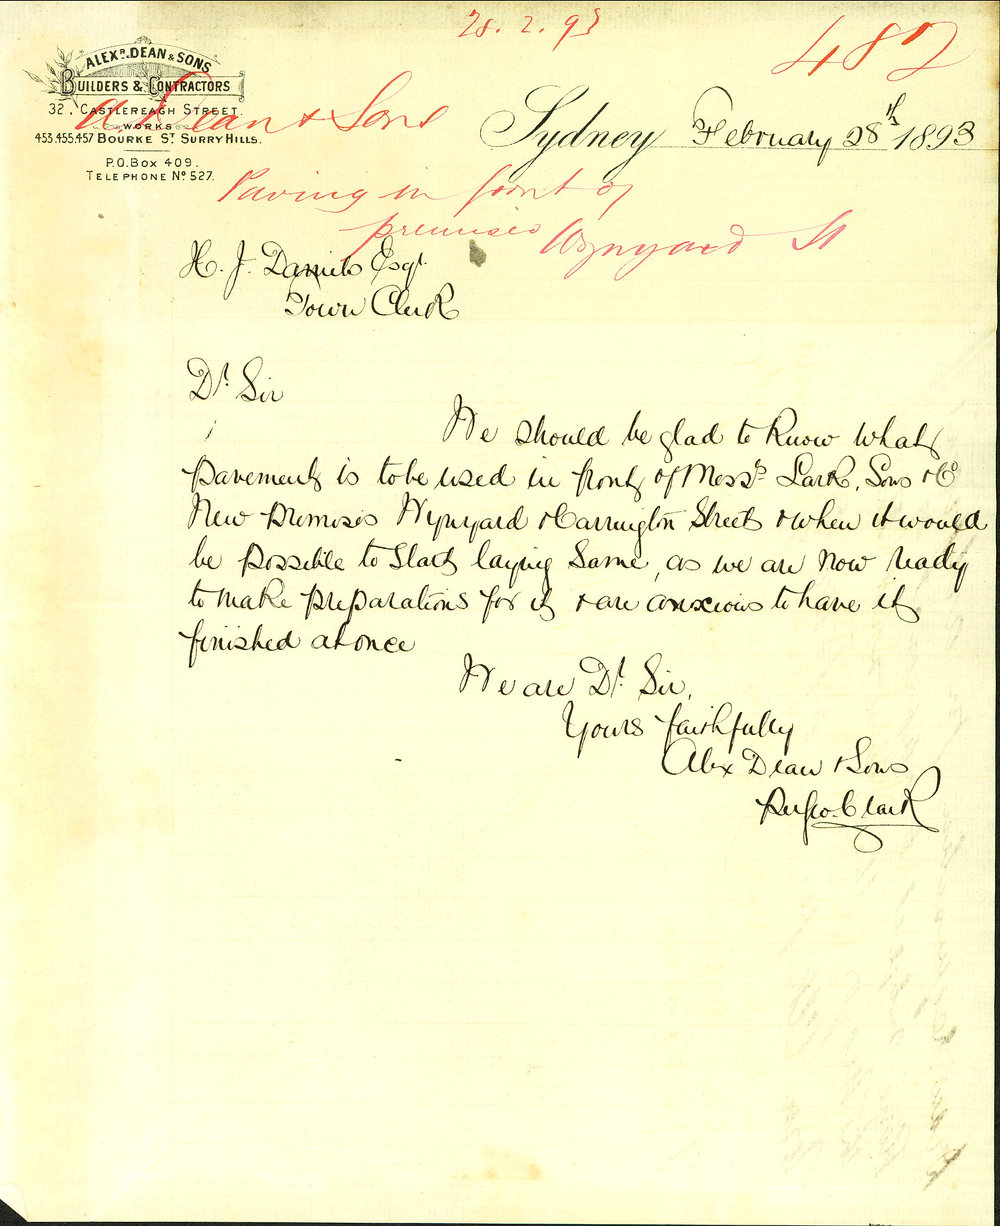 28.2.93
482
ALEXR. DEAN & SONS
BUILDERS & CONTRACTORS
32. CASTLEREAGH STREET.
WORKS
453.455.457 BOURKE ST SURRY HILLS.
P.O. BOX 409.
TELEPHONE No 527.
A. Dean & Sons
Sydney February 28th 1893
Paving in front of
premises Wynyard St
H. J. Daniels Esqr.
Town Clerk
Dr. Sir
We should be glad to Know what
pavement is to be used in front of Messrs. Lark, Sons & Co
New premises Wynyard & Carrington Streets & when it would
be possible to start laying Same, as we are now ready
to make preparations for it & are anxious to have it
finished at once
We are Dr. Sir,
Yours faithfully
Alex Dean & Sons
Per Geo. Clark